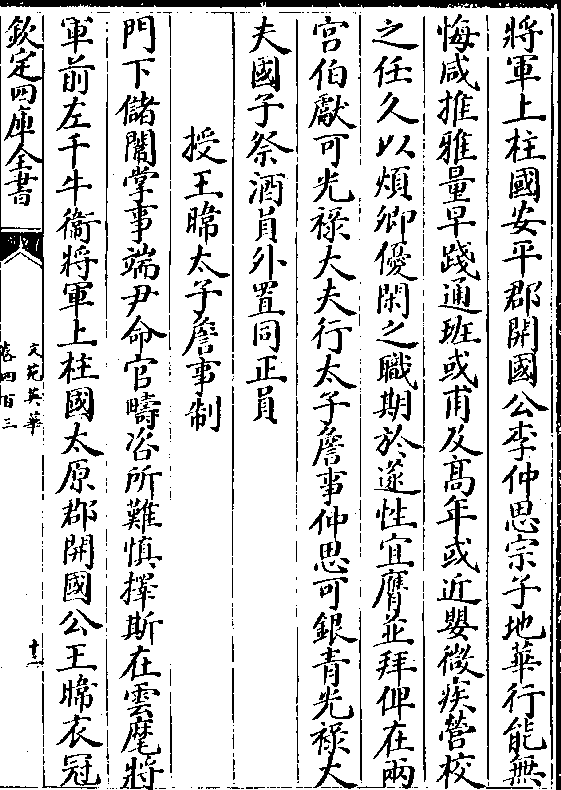 將軍上柱國安平郡開國公李仲思宗子地華行能無
悔咸推雅量早踐通班或甫及髙年或近嬰微疾營校
之任久以煩卿優閑之職期於遂性宜膺並拜俾在兩
宫伯獻可光祿大夫行太子詹事仲思可銀青光祿大
夫國子祭酒員外置同正員
授王暐太子詹事制
門下儲闈掌事端尹命官疇咨所難慎擇斯在雲麾將
軍前左千牛衞將軍上柱國太原郡開國公王暐衣冠
欽定四庫全書
文苑英華
卷四百三
十二